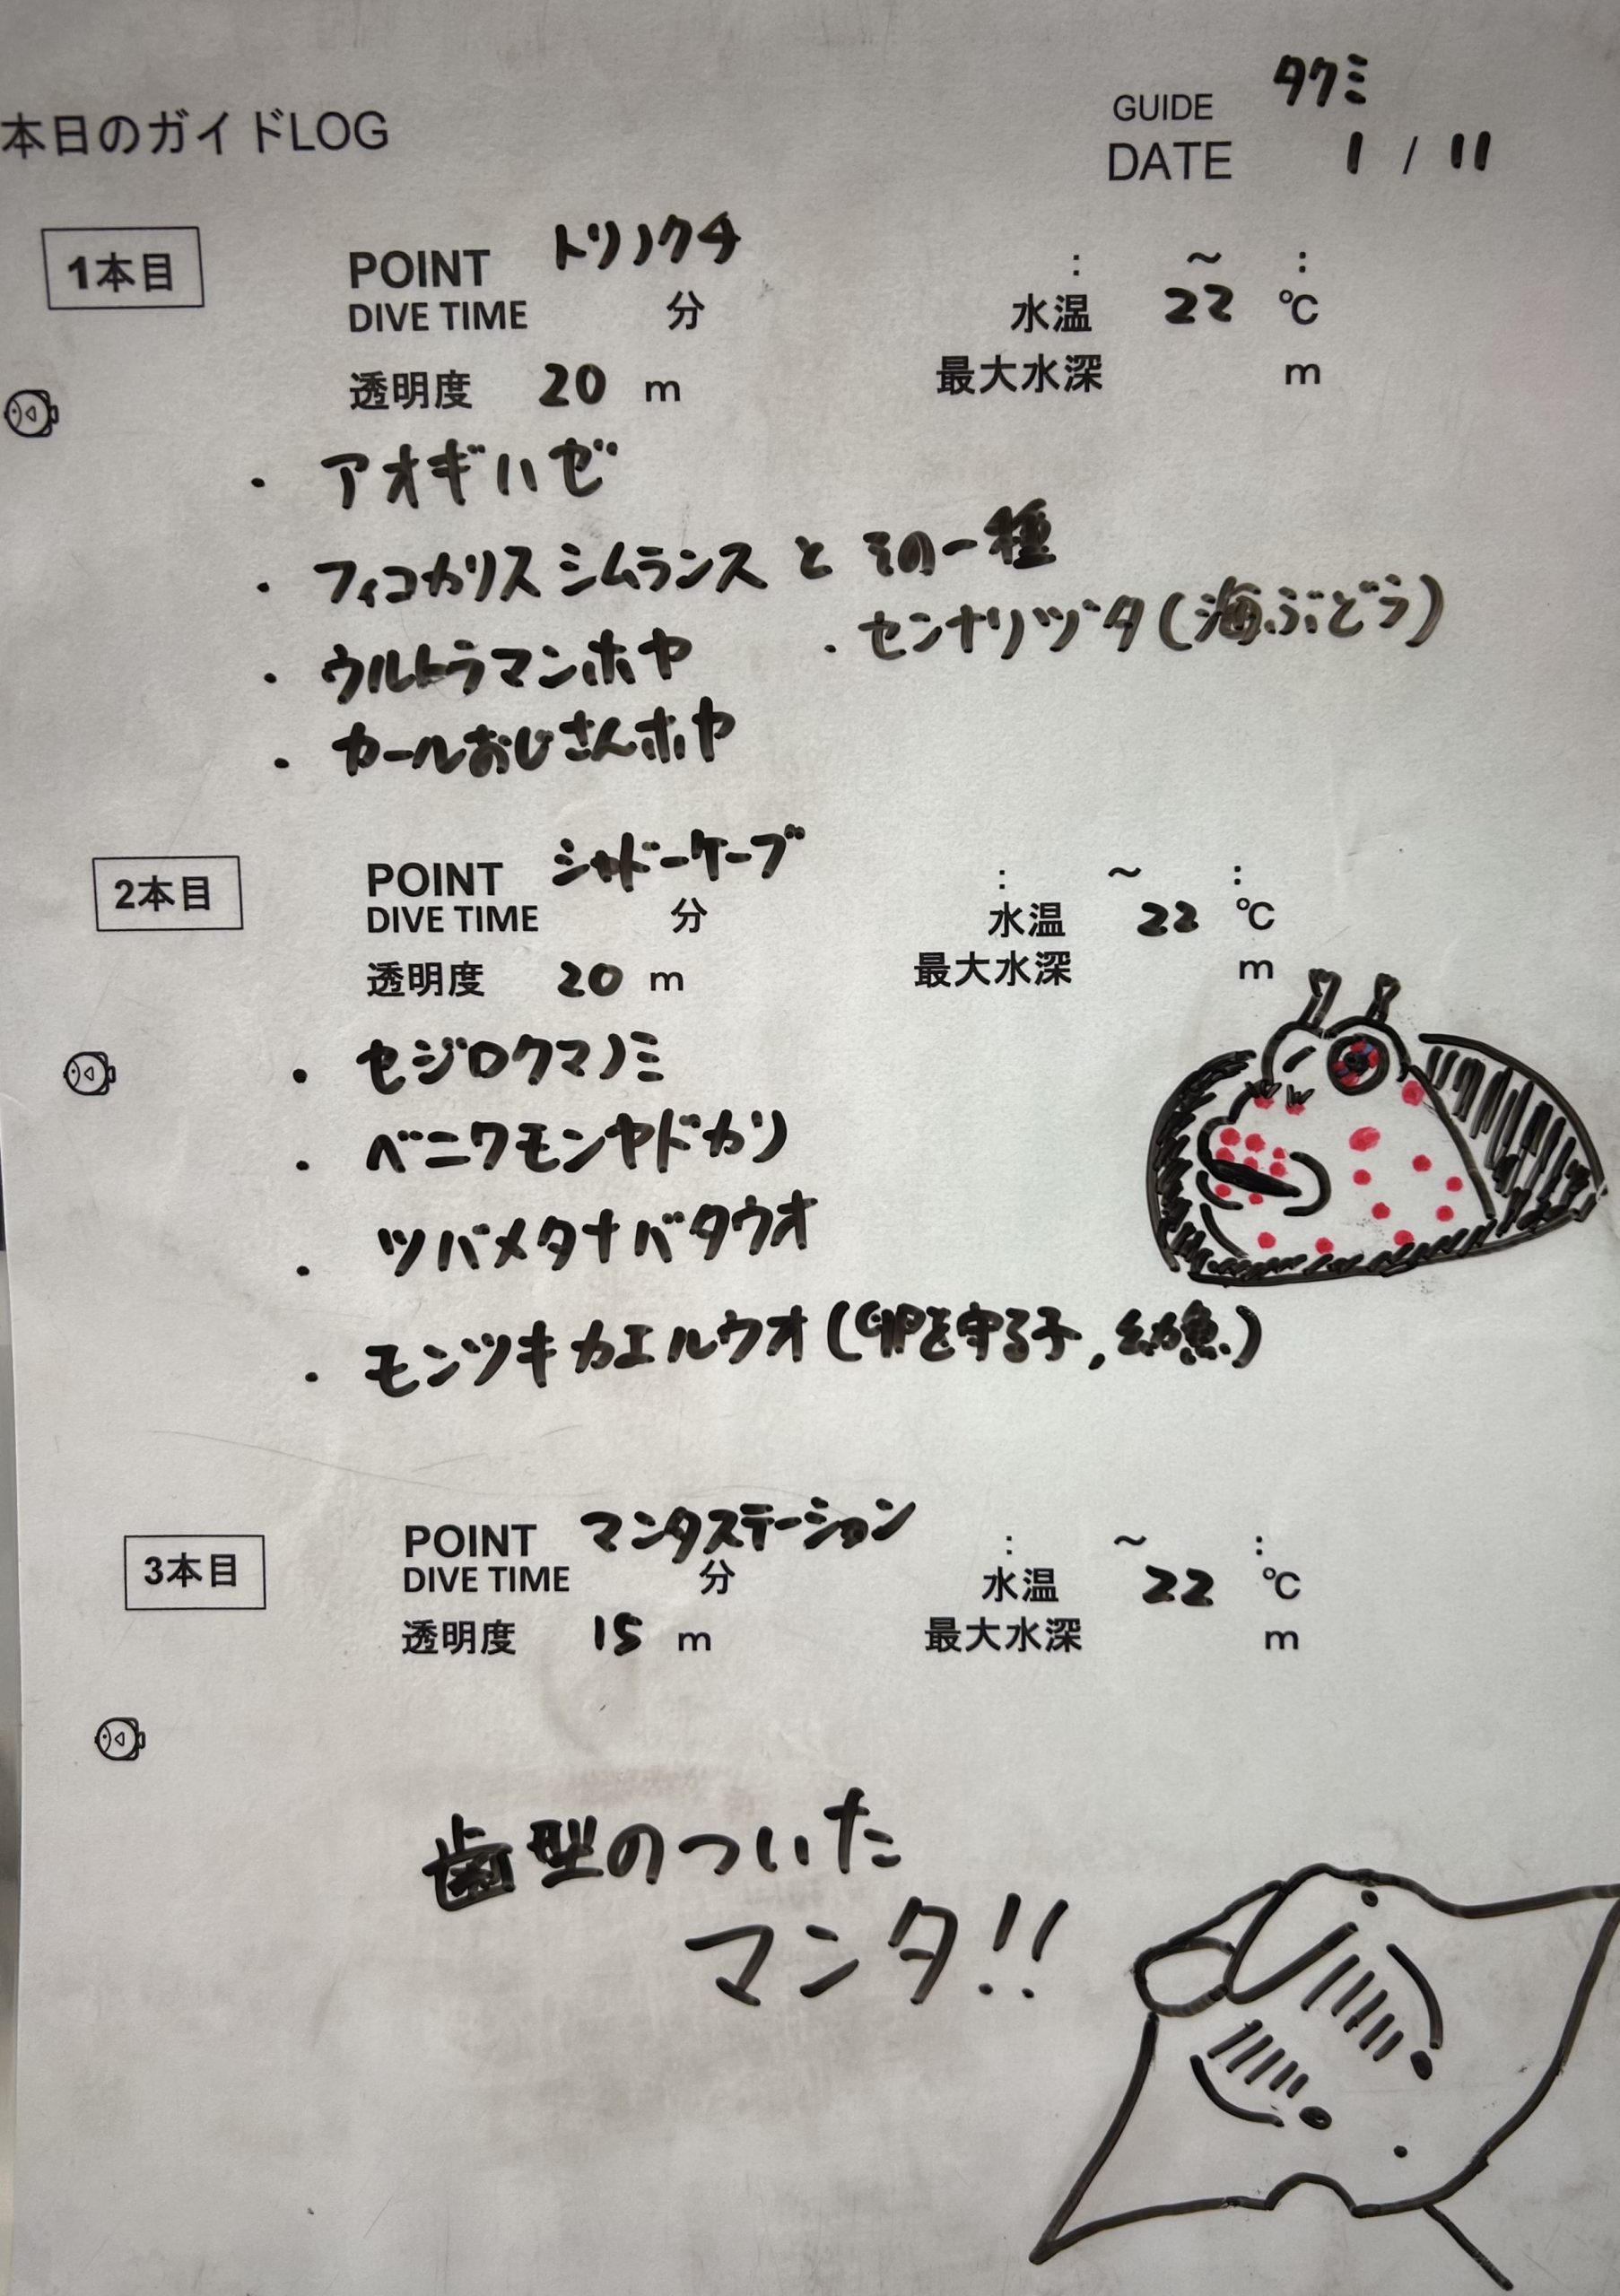 本日のガイドLOG
GUIDE タクミ
DATE 1 / 11
1本目
POINT トリノクチ : ～ :
DIVE TIME 分 水温 22 ℃
透明度 20 m 最大水深 m
・ アオギハゼ
・ フィコカリスシムランス と その一種
・ ウルトラマンホヤ ・ センナリヅタ(海ぶどう)
・ カールおじさんホヤ
2本目
POINT シャドーケーブ : ～ :
DIVE TIME 分 水温 22 ℃
透明度 20 m 最大水深 m
・ セジロクマノミ
・ ベニワモンヤドカリ
・ ツバメタナバタウオ
・ モンツキカエルウオ(卵を守る子,幼魚)
3本目
POINT マンタステーション : ～ :
DIVE TIME 分 水温 22 ℃
透明度 15 m 最大水深 m
歯型のついた
マンタ!!